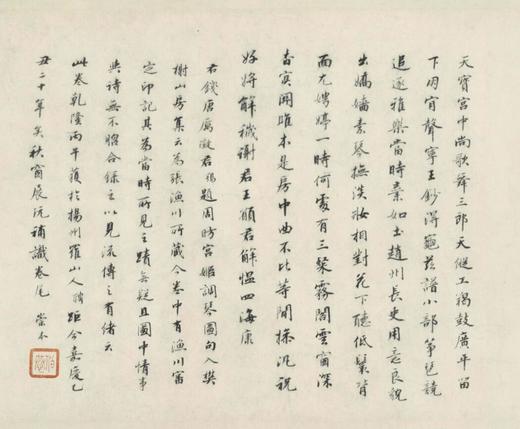 天寶宮中尚歌舞三郎天縱工羯鼓廣平留
下用宵聲寧王鈔得龜茲譜小部箏琶競
追逐雅樂當時棄如土趙州長史用意良貌
出嬌嬙素琴撫淡妝相對花下聽低鬟背
面尤娉婷一時何處有三粲霧閣雲窗深
杳冥關雎本是房中曲不比等閒操汎祝
好將解穢謝君王願君解慍四海康
右錢唐厲徵君鶚題周昉宮姬調琴圖句入樊
榭山房集云為張漁川所藏今卷中有漁川審
定印記其為當時所見之蹟無疑且圖中情事
與詩無不脗合錄之以見流傳之有緒云
此卷乾隆丙午獲於揚州羅山人聘距今嘉慶乙
丑二十年矣秋窗展玩補識卷尾 崇本